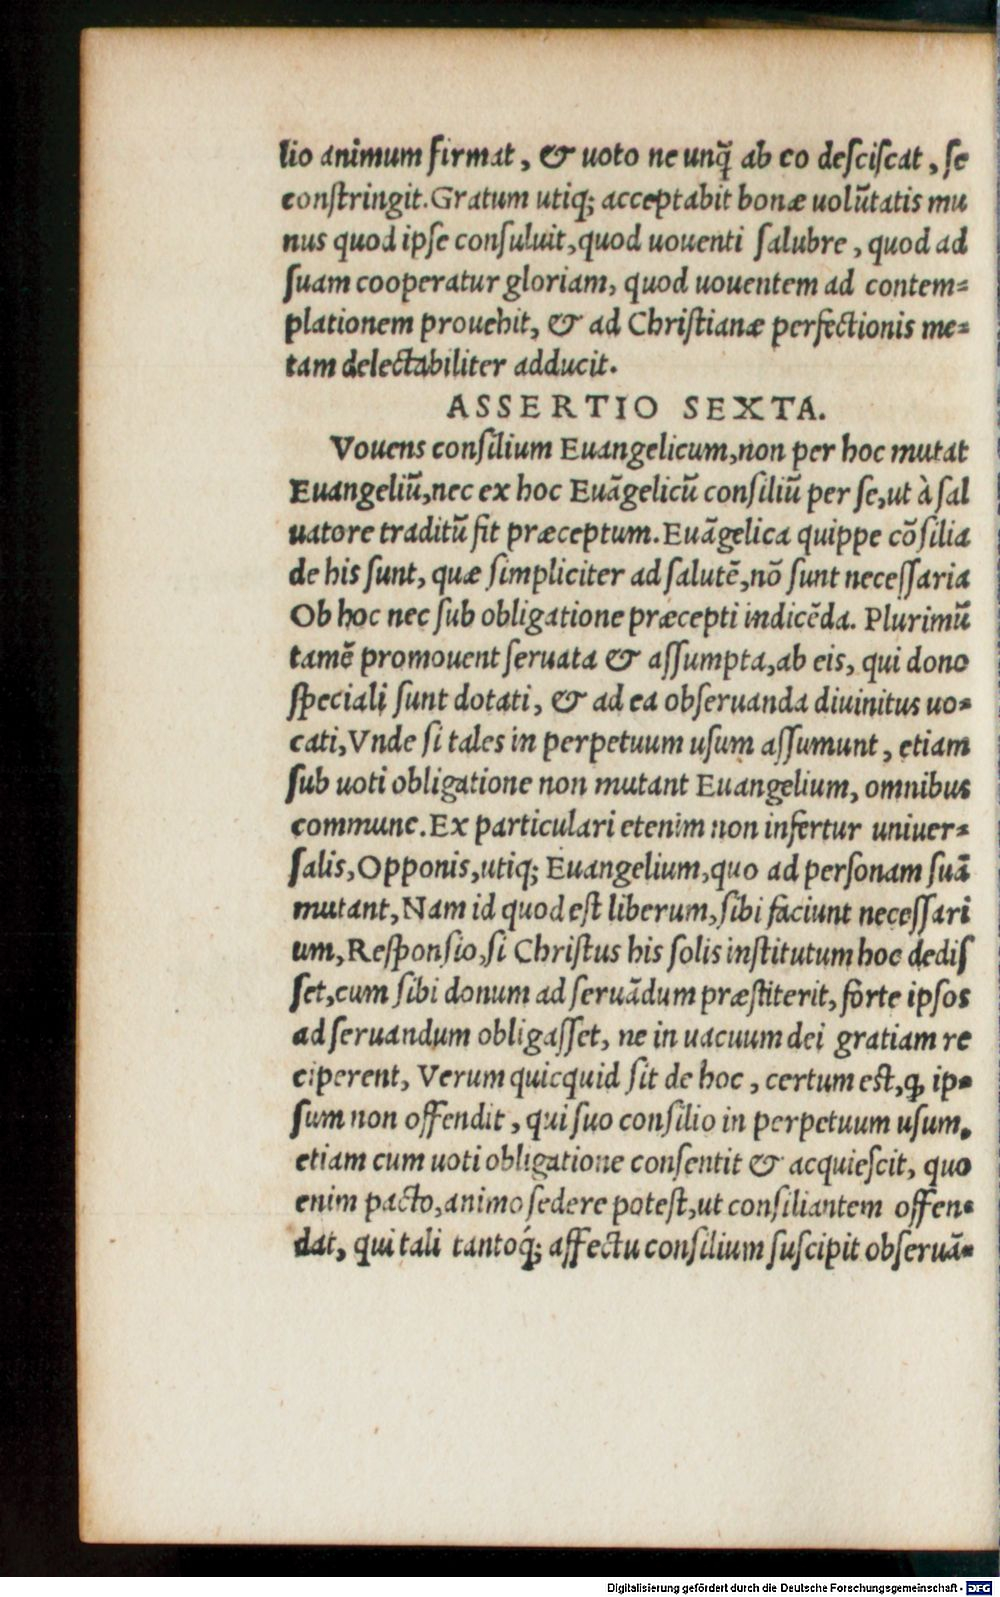 lio animum firmat, & uoto ne unq̃ ab eo desciscat, se
constringit. Gratum utiq; acceptabit bonæ uolũtatis mu
nus quod ipse consuluit, quod uouenti salubre, quod ad
suam cooperatur gloriam, quod uouentem ad contem=
plationem prouehit, & ad Christianæ perfectionis me=
tam delectabiliter adducit.
ASSERTIO SEXTA.
Vouens consilium Euangelicum, non per hoc mutat
Euangeliũ, nec ex hoc Euãgelicũ consiliũ per se, ut à sal
uatore traditũ fit præceptum. Euãgelica quippe cõsilia
de his sunt, quæ simpliciter ad salutẽ, nõ sunt necessaria
Ob hoc nec sub obligatione præcepti indicẽda. Plurimũ
tamẽ promouent seruata & assumpta, ab eis, qui dono
speciali sunt dotati, & ad ea obseruanda diuinitus uo=
cati, Vnde si tales in perpetuum usum assumunt, etiam
sub uoti obligatione non mutant Euangelium, omnibus
commune. Ex particulari etenim non infertur uniuer=
salis, Opponis, utiq; Euangelium, quo ad personam suã
mutant, Nam id quod est liberum, sibi faciunt necessari
um, Responsio, si Christus his solis institutum hoc dedis
set, cum sibi donum ad seruãdum præstiterit, forte ipsos
ad seruandum obligasset, ne in uacuum dei gratiam re
ciperent, Verum quicquid sit de hoc, certum est, ꝙ ip=
sum non offendit, qui suo consilio in perpetuum usum,
etiam cum uoti obligatione consentit & acquiescit, quo
enim pacto, animo sedere potest, ut consiliantem offen=
dat, qui tali tantoq́; affectu consilium suscipit obseruã=
Digitalisierung gefördert durch die Deutsche Forschungsgemeinschaft - DFG